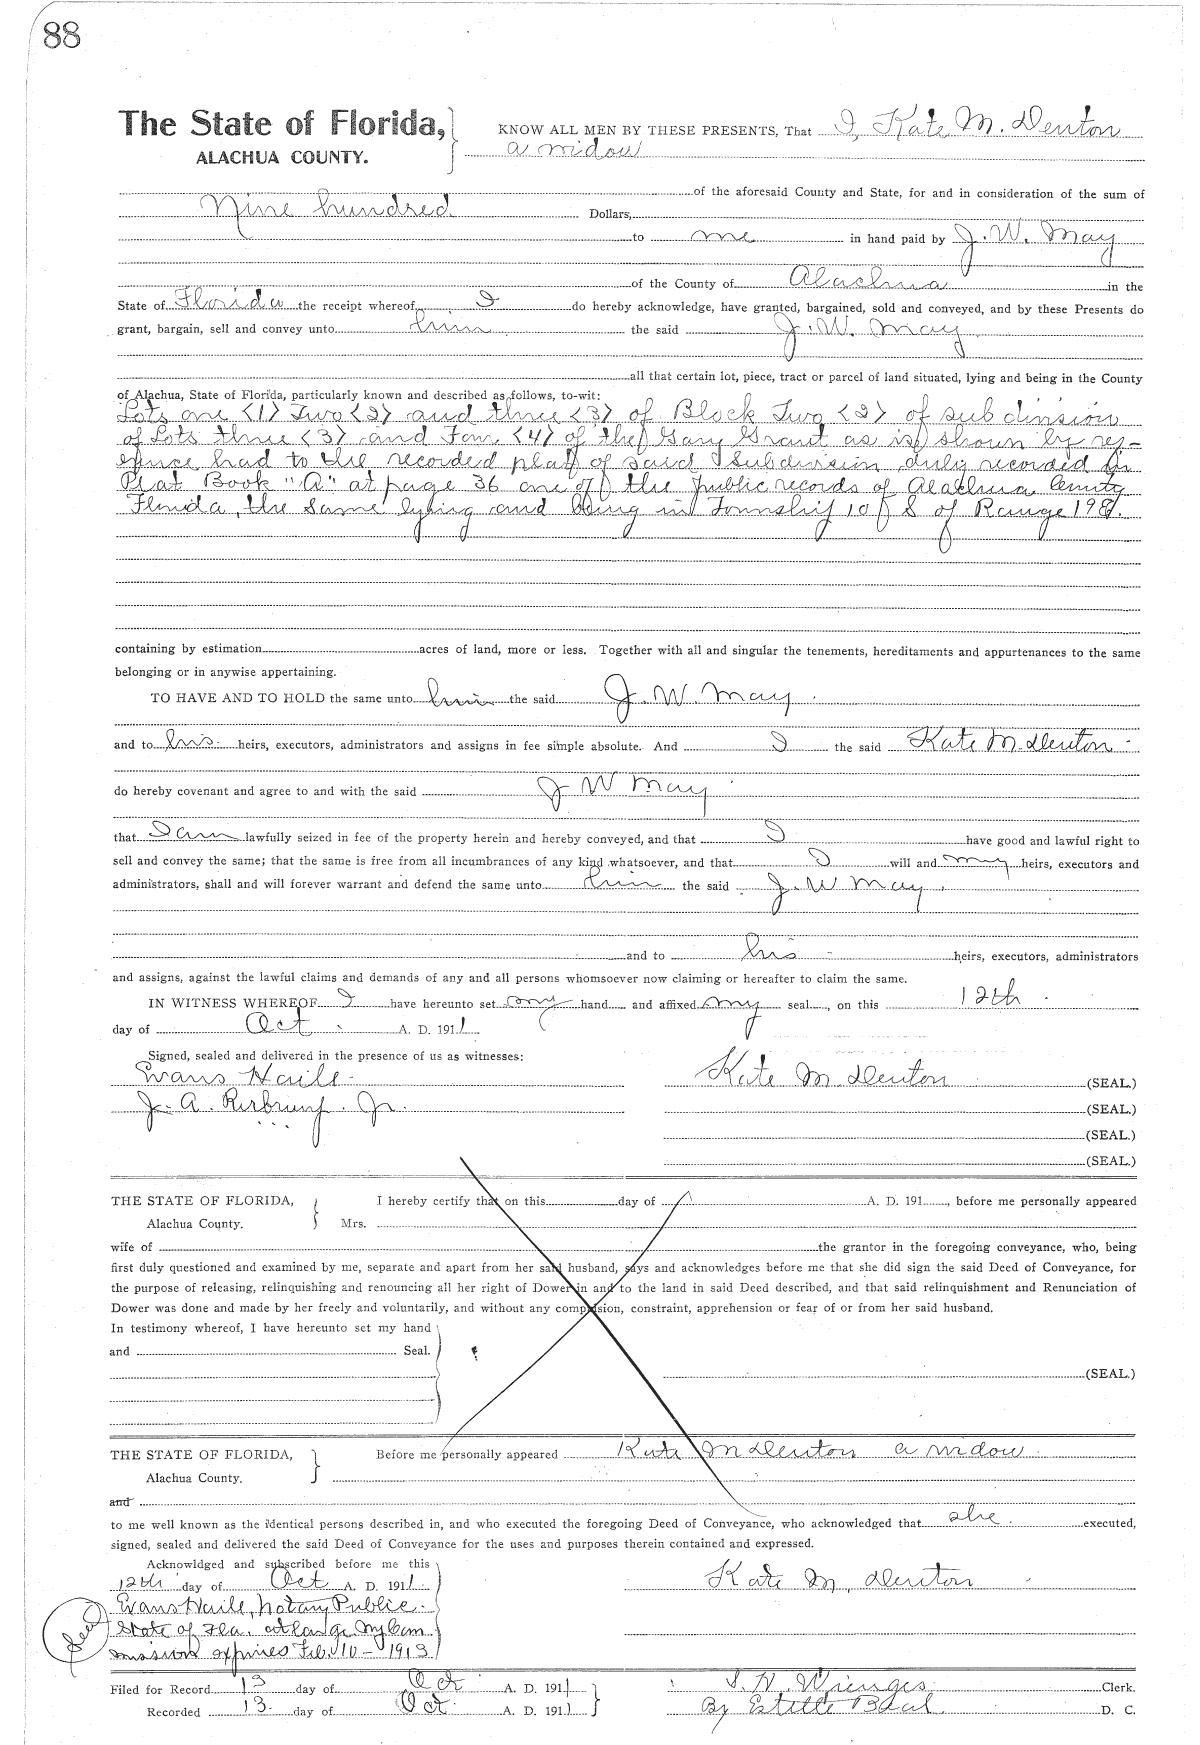 88
The State of Florida, KNOW ALL MEN BY THESE PRESENTS, That I, Kate M. Denton
ALACHUA COUNTY. a widow
of the aforesaid County and State, for and in consideration of the sum of
Nine hundred Dollars,
to me in hand paid by J. W. May
of the County of Alachua in the
State of Florida the receipt whereof, I do hereby acknowledge, have granted, bargained, sold and conveyed, and by these Presents do
grant, bargain, sell and convey unto him the said J. W. May
all that certain lot, piece, tract or parcel of land situated, lying and being in the County
of Alachua, State of Florida, particularly known and described as follows, to-wit:
Lots one <1> Two <2> and three <3> of Block Two <2> of subdivision
of Lots three <3> and Four <4> of the Gary Grant as is shown by ref-
erence had to the recorded plat of said Subdivision duly recorded in
Plat Book "A" at page 36 one of the public records of Alachua County
Florida, the same lying and being in Township 10 of S of Range 19
containing by estimation acres of land, more or less. Together with all and singular the tenements, hereditaments and appurtenances to the same
belonging or in anywise appertaining.
TO HAVE AND TO HOLD the same unto him the said J. W. May
and to his heirs, executors, administrators and assigns in fee simple absolute. And I the said Kate M. Denton
do hereby covenant and agree to and with the said J W May
that I am lawfully seized in fee of the property herein and hereby conveyed, and that I have good and lawful right to
sell and convey the same; that the same is free from all incumbrances of any kind whatsoever, and that I will and my heirs, executors and
administrators, shall and will forever warrant and defend the same unto him the said J. W May,
and to his heirs, executors, administrators
and assigns, against the lawful claims and demands of any and all persons whomsoever now claiming or hereafter to claim the same.
IN WITNESS WHEREOF I have hereunto set my hand and affixed my seal, on this 12th
day of Oct. A. D. 1911.
Signed, sealed and delivered in the presence of us as witnesses:
Evans Haile Kate M Denton (SEAL.)
J. A. Jr. (SEAL.)
(SEAL.)
(SEAL.)
THE STATE OF FLORIDA, I hereby certify that on this day of A. D. 191 , before me personally appeared
Alachua County. Mrs.
wife of the grantor in the foregoing conveyance, who, being
first duly questioned and examined by me, separate and apart from her said husband, says and acknowledges before me that she did sign the said Deed of Conveyance, for
the purpose of releasing, relinquishing and renouncing all her right of Dower in and to the land in said Deed described, and that said relinquishment and Renunciation of
Dower was done and made by her freely and voluntarily, and without any compulsion, constraint, apprehension or fear of or from her said husband.
In testimony whereof, I have hereunto set my hand
and Seal.
(SEAL.)
THE STATE OF FLORIDA, Before me personally appeared Kate M Denton a widow
Alachua County.
and
to me well known as the identical persons described in, and who executed the foregoing Deed of Conveyance, who acknowledged that she executed,
signed, sealed and delivered the said Deed of Conveyance for the uses and purposes therein contained and expressed.
Acknowldged and subscribed before me this
12th day of Oct A. D. 1911. Kate M. Denton
Evans Haile, Notary Public
Seal State of Fla. at large My Com
mission expires Feb. 10 - 1913
Filed for Record 13 day of Oct A. D. 1911 S. H. Wienges Clerk.
Recorded 13. day of Oct. A. D. 1911 By Estelle D. C.